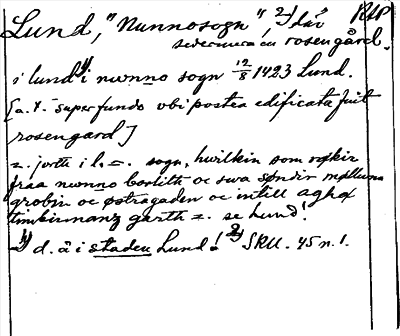 Lund, "Nunnosogn", 2) där RAP
sedermera en rosengård.
i lund 1) i nwnno sogn 12/8 1423 Lund.
[a. t. super fundo vbi postea edificata fuit
rosengard]
=. jorth i l. =. sogn, hwilkin som røkir
fraa nwnno boslith oc swa søndir
grobin oc østragaden oc intill aghæ
timbirmanz garth =. se Lund!
1) d. ä i staden Lund! 2) SRU. 45 n. 1.